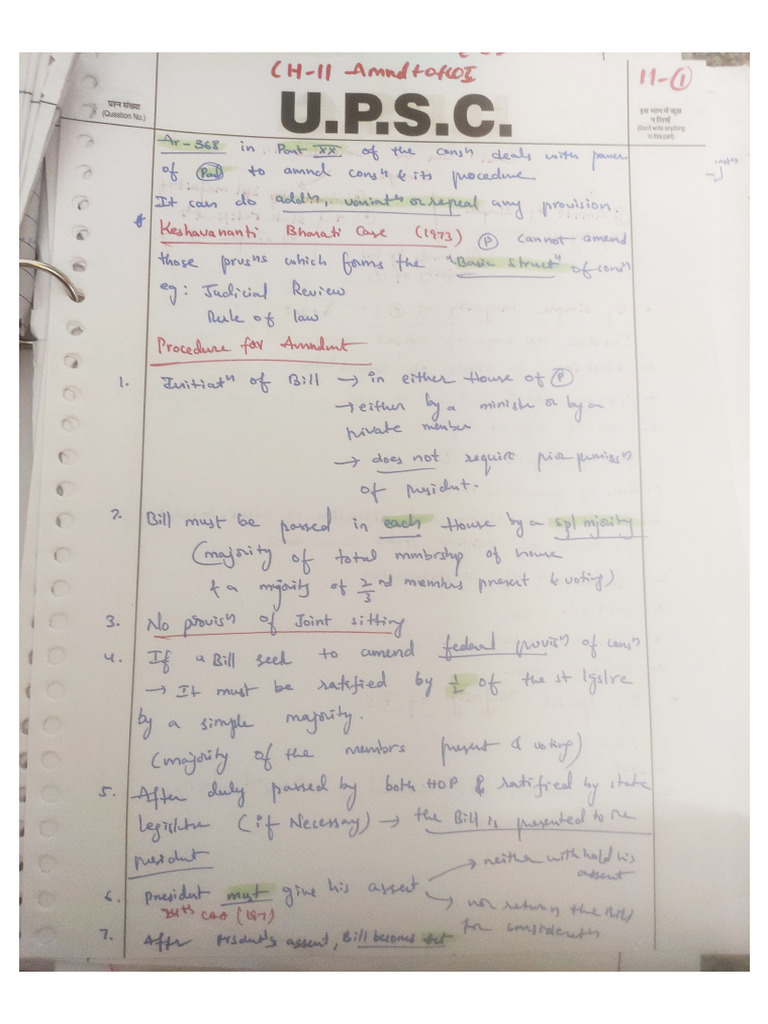 CH-11 Amndt of COI
11-①
प्रश्न संख्या
(Question No.)
U.P.S.C.
इस भाग में कुछ
न लिखें
(Don't write anything
in this part)
Ar-368 in Part XX of the consⁿ deals with power
of Parl to amnd consⁿ & its procedure
It can do addⁿ, variatⁿ or repeal any provision.
* Keshavananti Bharati Case (1973) Ⓟ cannot amend
those prvsⁿs which forms the "Basic struct" of consⁿ
eg: Judicial Review
Rule of law
Procedure for Amndmnt
1. Initiatⁿ of Bill → in either House of Ⓟ
→ either by a ministr or by a
private member
→ does not require prir prmissⁿ
of president.
2. Bill must be passed in each House by a spl mjority
(majority of total mmbrship of house
& a mjority of 2/3 rd membrs present & voting)
3. No provisⁿ of Joint sitting
4. If a Bill seek to amend federal provisⁿ of consⁿ
→ It must be ratified by 1/2 of the st lgslre
by a simple majority.
(majority of the membrs present & voting)
5. After duly passed by both HOP & ratified by state
legislture (if Necessary) → the Bill is presented to the
president
6. president must give his assent → neither withhold his
assent
→ nor return the Bill
for considerath
24th CAA (1971)
7. After prsdnt's assent, Bill becomes Act